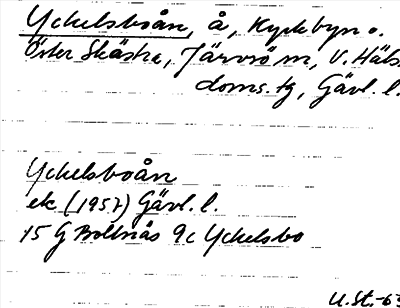 Yckelsboån, å, Kyrkbyn o.
Öster Skästra, Järvsö sn, V. Häls.
doms. tg, Gävl. l.
Yckelsboån
ek (1957) Gävl. l.
15 G Bollnäs 9c Yckelsbo
U. St. -63